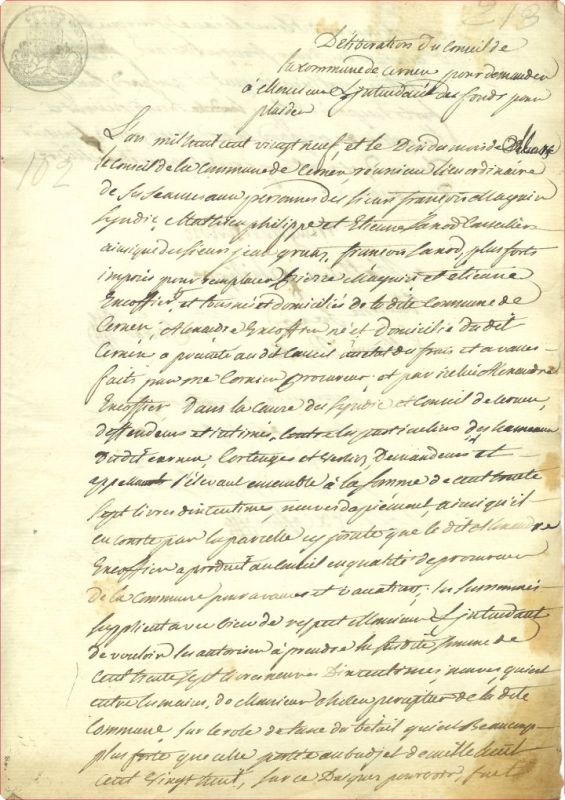 213
Déliberation du Conseil de
la commune de Cernex pour demander
à Monsieur L'intendant des fonds pour
plaider
L'an mil huit cent vingt neuf et le Dix du mois de
102
le Conseil de la Commune de Cernex réuni au lieu ordinaire
de ses seances aux personnes des sieurs françois Magnin
Syndic, Mathieu philippe et Etienne Lanod Conseillers
ainsi que des sieurs jean françois Lanod, plus forts
imposés pour remplacer pierre Magnin et etienne
Encoffier, et tous nés et domiciliés de la dite Commune de
Cernex, Alexandre Encoffier né et domicilié du dit
Cernex a présenté au dit Conseil des frais et avances
faits par me Cornier procureur et par ledit Alexandre
Encoffier Dans la Cause des Syndic et Conseil de Cernex
deffendeurs et intimés, Contre les particuliers des hameaux
du dit Cernex, Demandeurs et
appellants s'élevant ensemble à la somme de cent trente
sept livres centimes neuves de piémont, ainsi qu'il
en conste par la parcelle cy jointe que le dit Alexandre
Encoffier a produit au Conseil en qualité de procureur
de la Commune pour avances et vacations; les susnommés
supplient avec bien de respect Monsieur L'intendant
de vouloir les autoriser à prendre la susdite somme de
cent trente sept livres neuves centimes neuves qui est
entre les mains de Monsieur percepteur de la dite
Commune, sur le role de taxe du bétail qui est Beaucoup
plus forte que celle portée au budjet de mille huit
cent vingt huit, sur ce Daignes pourvoir,